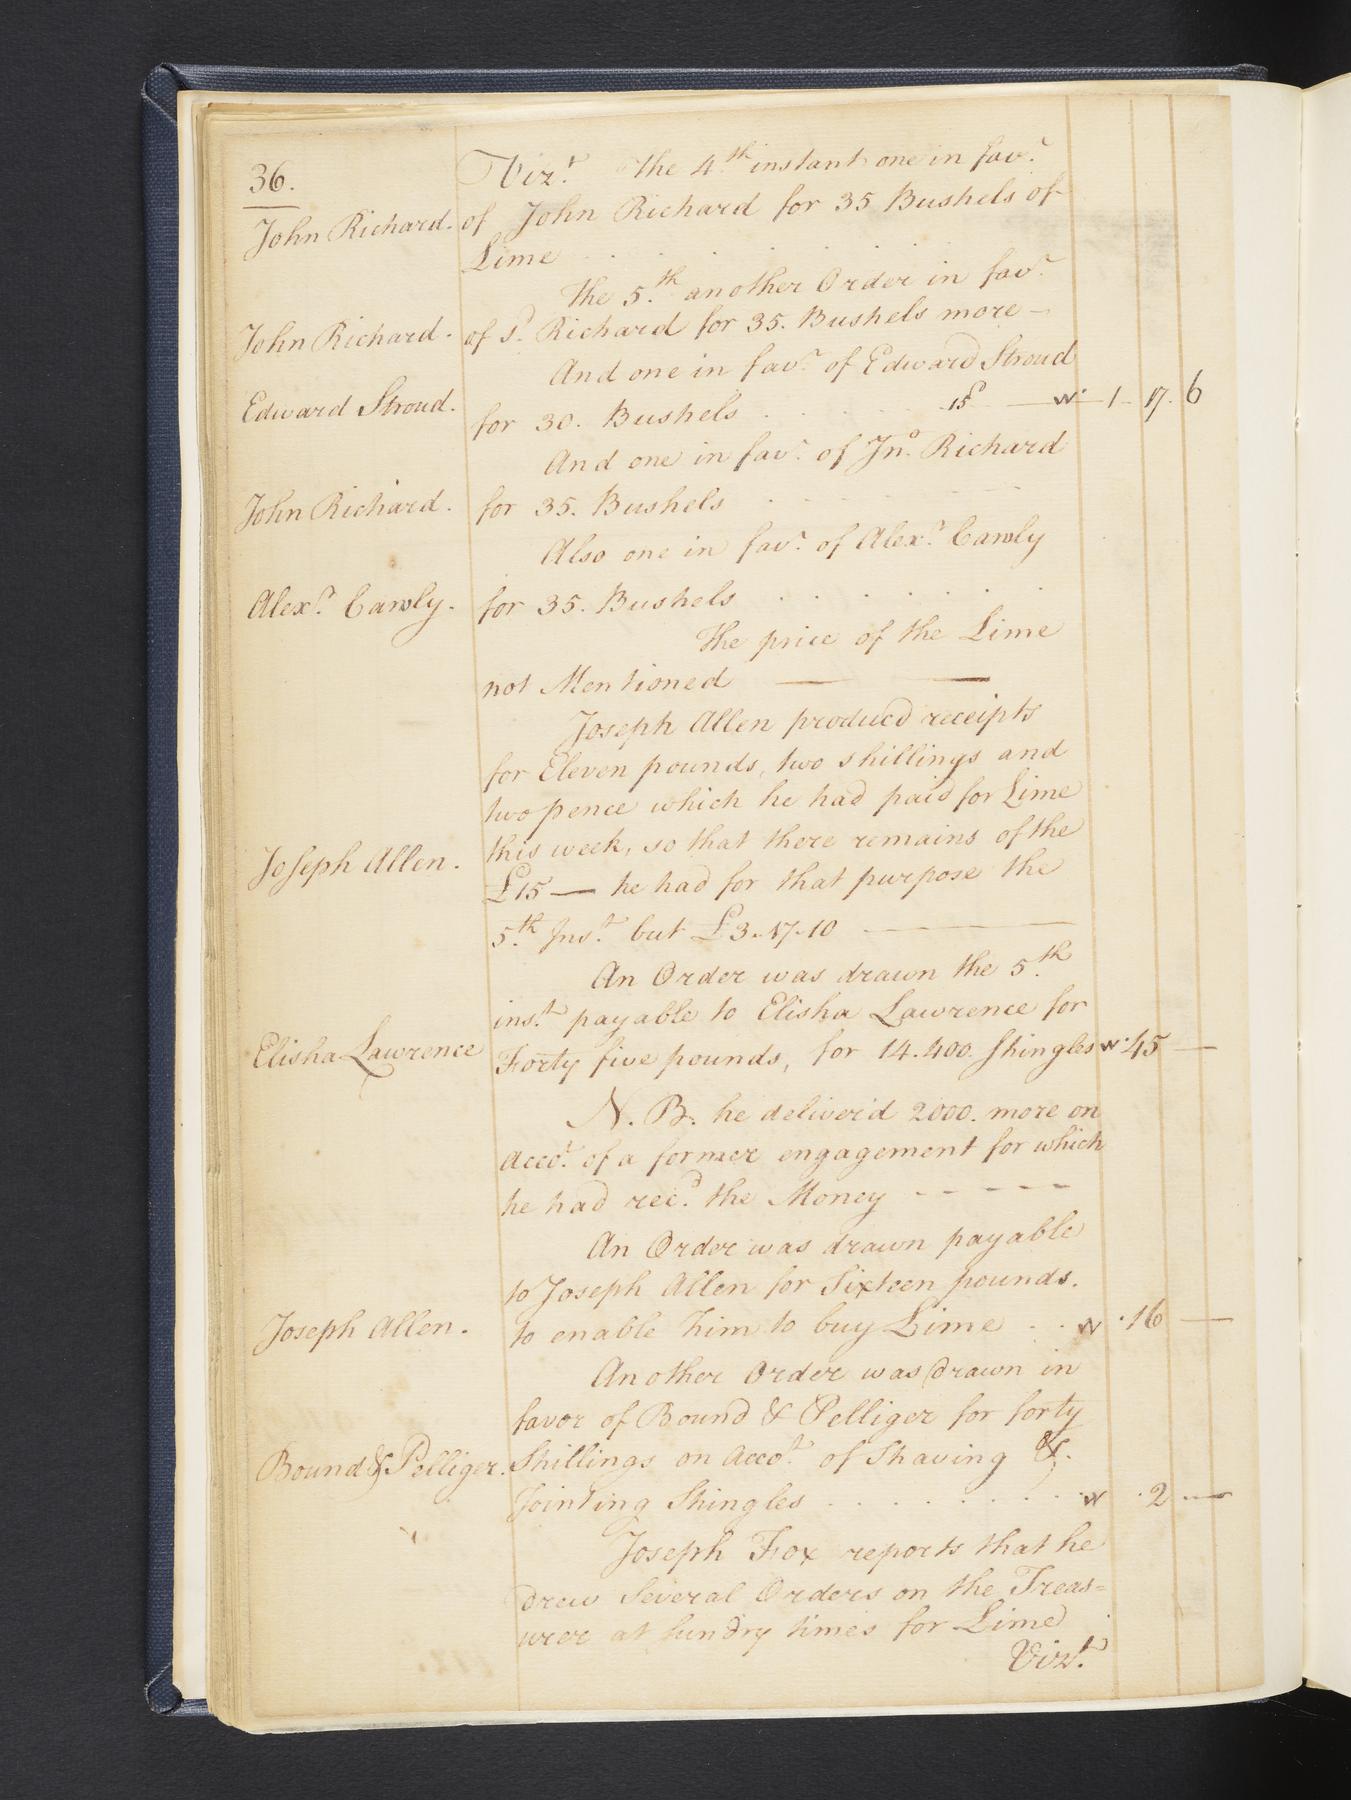 36.
Vizt. The 4th. instant one in favr.
John Richard. of John Richard for 35 Bushels of
Lime . . . . . .
The 5th. another Order in favr.
John Richard. of sd. Richard for 35. Bushels more —
And one in favr. of Edward Stroud
Edward Stroud. for 30. Bushels . . . . . 15d — w. — 1 - 17. 6
And one in favr. of Jno. Richard
John Richard. for 35. Bushels . . . . . .
Also one in favr. of Alexr. Cawly
Alexr. Cawly. for 35. Bushels . . . . . .
The price of the Lime
not Mentioned — —
Joseph Allen producd receipts
for Eleven pounds, two shillings and
two pence which he had paid for Lime
this week, so that there remains of the
Joseph Allen. £15 — he had for that purpose the
5th. Inst. but £3.. 17.. 10 —
An Order was drawn the 5th.
inst. payable to Elisha Lawrence for
Elisha Lawrence Forty five pounds, for 14.400. Shingles w. 45 —
N. B. he deliver'd 2000. more on
Acco.t of a former engagement for which
he had recd. the Money - - - - -
An Order was drawn payable
to Joseph Allen for Sixteen pounds.
Joseph Allen. to enable him to buy Lime . . w . 16 —
Another Order was drawn in
favor of Bound & Pelliger for forty
Bound & Pelliger. Shillings on Acco.t of Shaving &.
Jointing Shingles . . . . . . . . w . 2 —
Joseph Fox reports that he
drew Several Orders on the Treas=
urer at sundry times for Lime
Vizt.